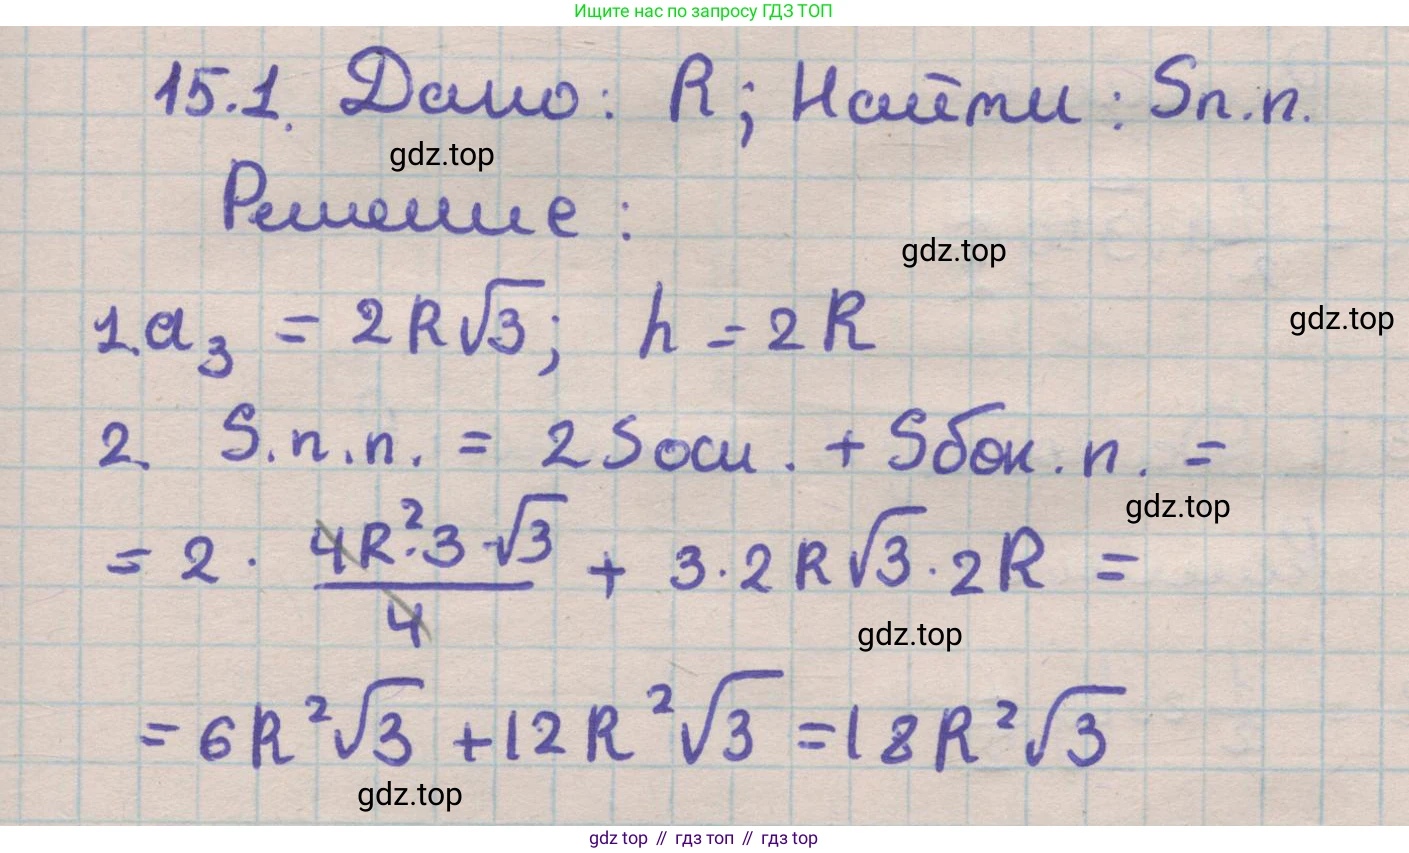 Ищите нас по запросу ГДЗ ТОП
15.1. Дано: R; Найти: Sп.п.
gdz.top
Решение:
gdz.top
1. a₃ = 2R√3; h = 2R
gdz.top
2. S.п.п. = 2Sосн. + Sбок.п. =
gdz.top
= 2 · 4R²·3·√3/4 + 3·2R√3·2R =
gdz.top
= 6R²√3 + 12R²√3 = 18R²√3
gdz.top
gdz top // гдз топ // gdz top